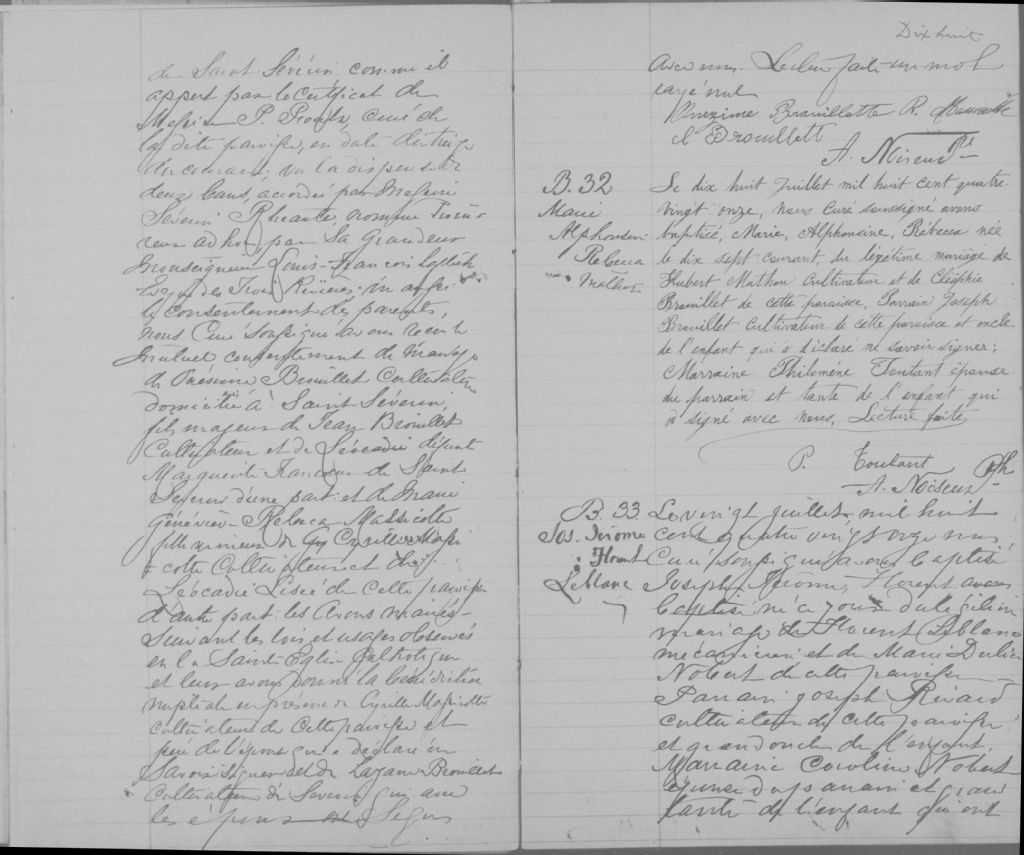 de Saint Sévérin comme il
appert par le certificat de
Messire P. Proulx, curé de
la dite paroisse, en date du treize
du courant; vu la dispense de
deux bans, accordée par Messire
Sévérin Rhéaulte, nommé
ad hoc, par Sa Grandeur
Monseigneur Louis-François Laflèche
des Trois Rivières; vu aussi
le consentement des parents,
nous Curé soussigné avons reçu le
mutuel consentement de mariage
de Onésime Brouillet Cultivateur
domicilié à Saint Séverin,
fils majeur de Jean Brouillet
Cultivateur et de défunte
Marguerite de Saint
Séverin d'une part: et de Marie
Généviève Rebecca Massicotte
fille mineure de Cyrille Massi
cotte Cultivateur et de
Léocadie de cette paroisse
d'autre part: les avons mariés
suivant les lois et usages observés
en la Sainte Eglise Catholique
et leur avons donné la bénédiction
nuptiale en présence de Cyrille Massicotte
cultivateur de cette paroisse et
père de l'épouse qui a déclaré ne
savoir signer et de Brouillet
cultivateur de Séverin qui avec
les époux
Dix huit
avec nous. Lecture faite un mot
rayé nul
Onezime Brouillette R. Massicotte
Brouillett
A. Noiseux Ptre
B. 32
Marie
Alphonsine
Rébecca
Mathon
Le dix huit Juillet mil huit cent quatre
vingt onze, nous curé soussigné avons
baptisé, Marie, Alphonsine, Rébecca née
le dix sept courant, du légitime mariage de
Hubert Mathon Cultivateur et de Cléophie
Brouillet de cette paroisse, Parrain Joseph
Brouillet Cultivateur de cette paroisse et oncle
de l'enfant qui a déclaré ne savoir signer;
Marraine Philomène Toutant épouse
du parrain et tante de l'enfant qui
a signé avec nous, Lecture faite
P. Toutant
A. Noiseux
B. 33.
Jos. Jérôme
Florent
Leblanc
Le vingt juillet mil huit
cent quatre vingt onze nous
Curé soussigné avons baptisé
Joseph, Jérome, Florent avons
baptisé né ce jour du légitime
mariage de Florent Leblanc
mécanicien et de Marie Delia
Nobert de cette paroisse
Parrain Joseph Rivard
cultivateur de cette paroisse
et grand oncle de l'enfant.
Marraine Caroline Nobert
épouse du parrain et grand
tante de l'enfant qui ont